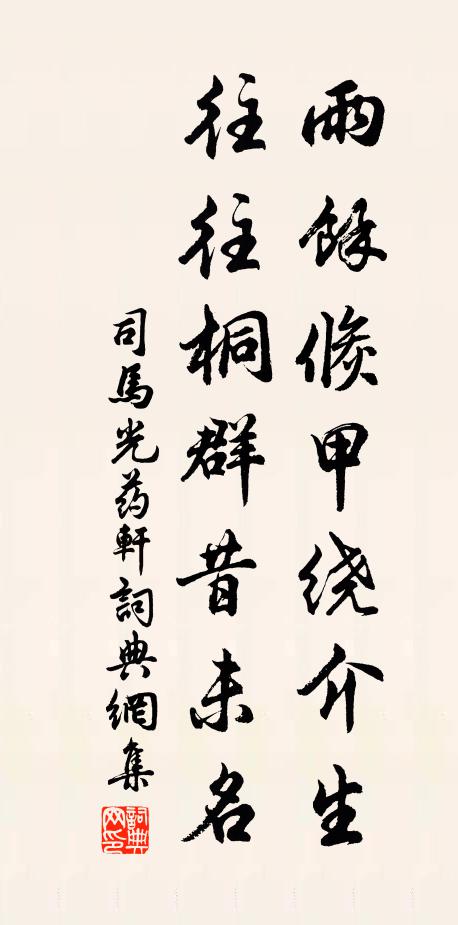 雨餘倐甲绕介生
往往桐群昔未名
司馬光药軒詞典網集
詞典网印